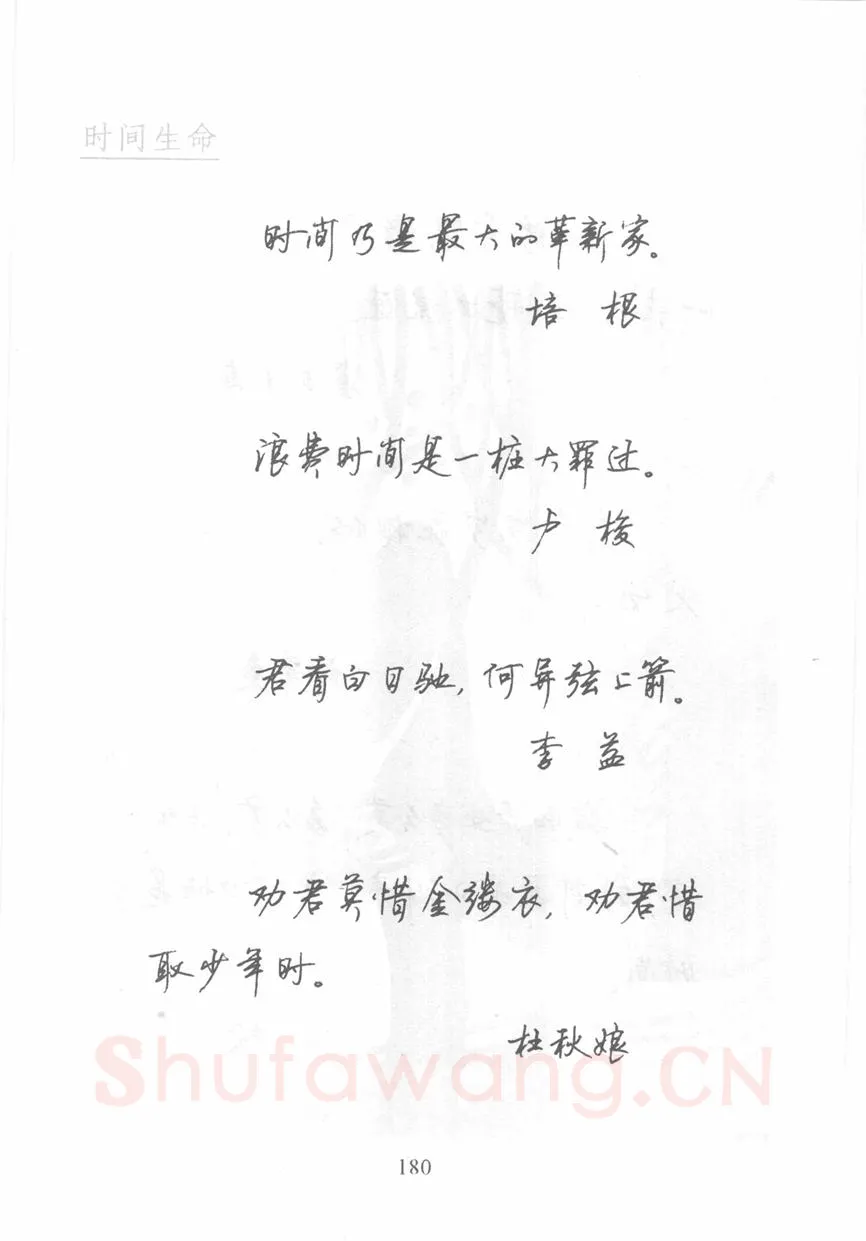 时间生命
时间乃是最大的革新家。
培 根
浪费时间是一桩大罪过。
卢 梭
君看白日驰，何异弦上箭。
李 益
劝君莫惜金缕衣，劝君惜
取少年时。
杜秋娘
Shufawang.CN
180